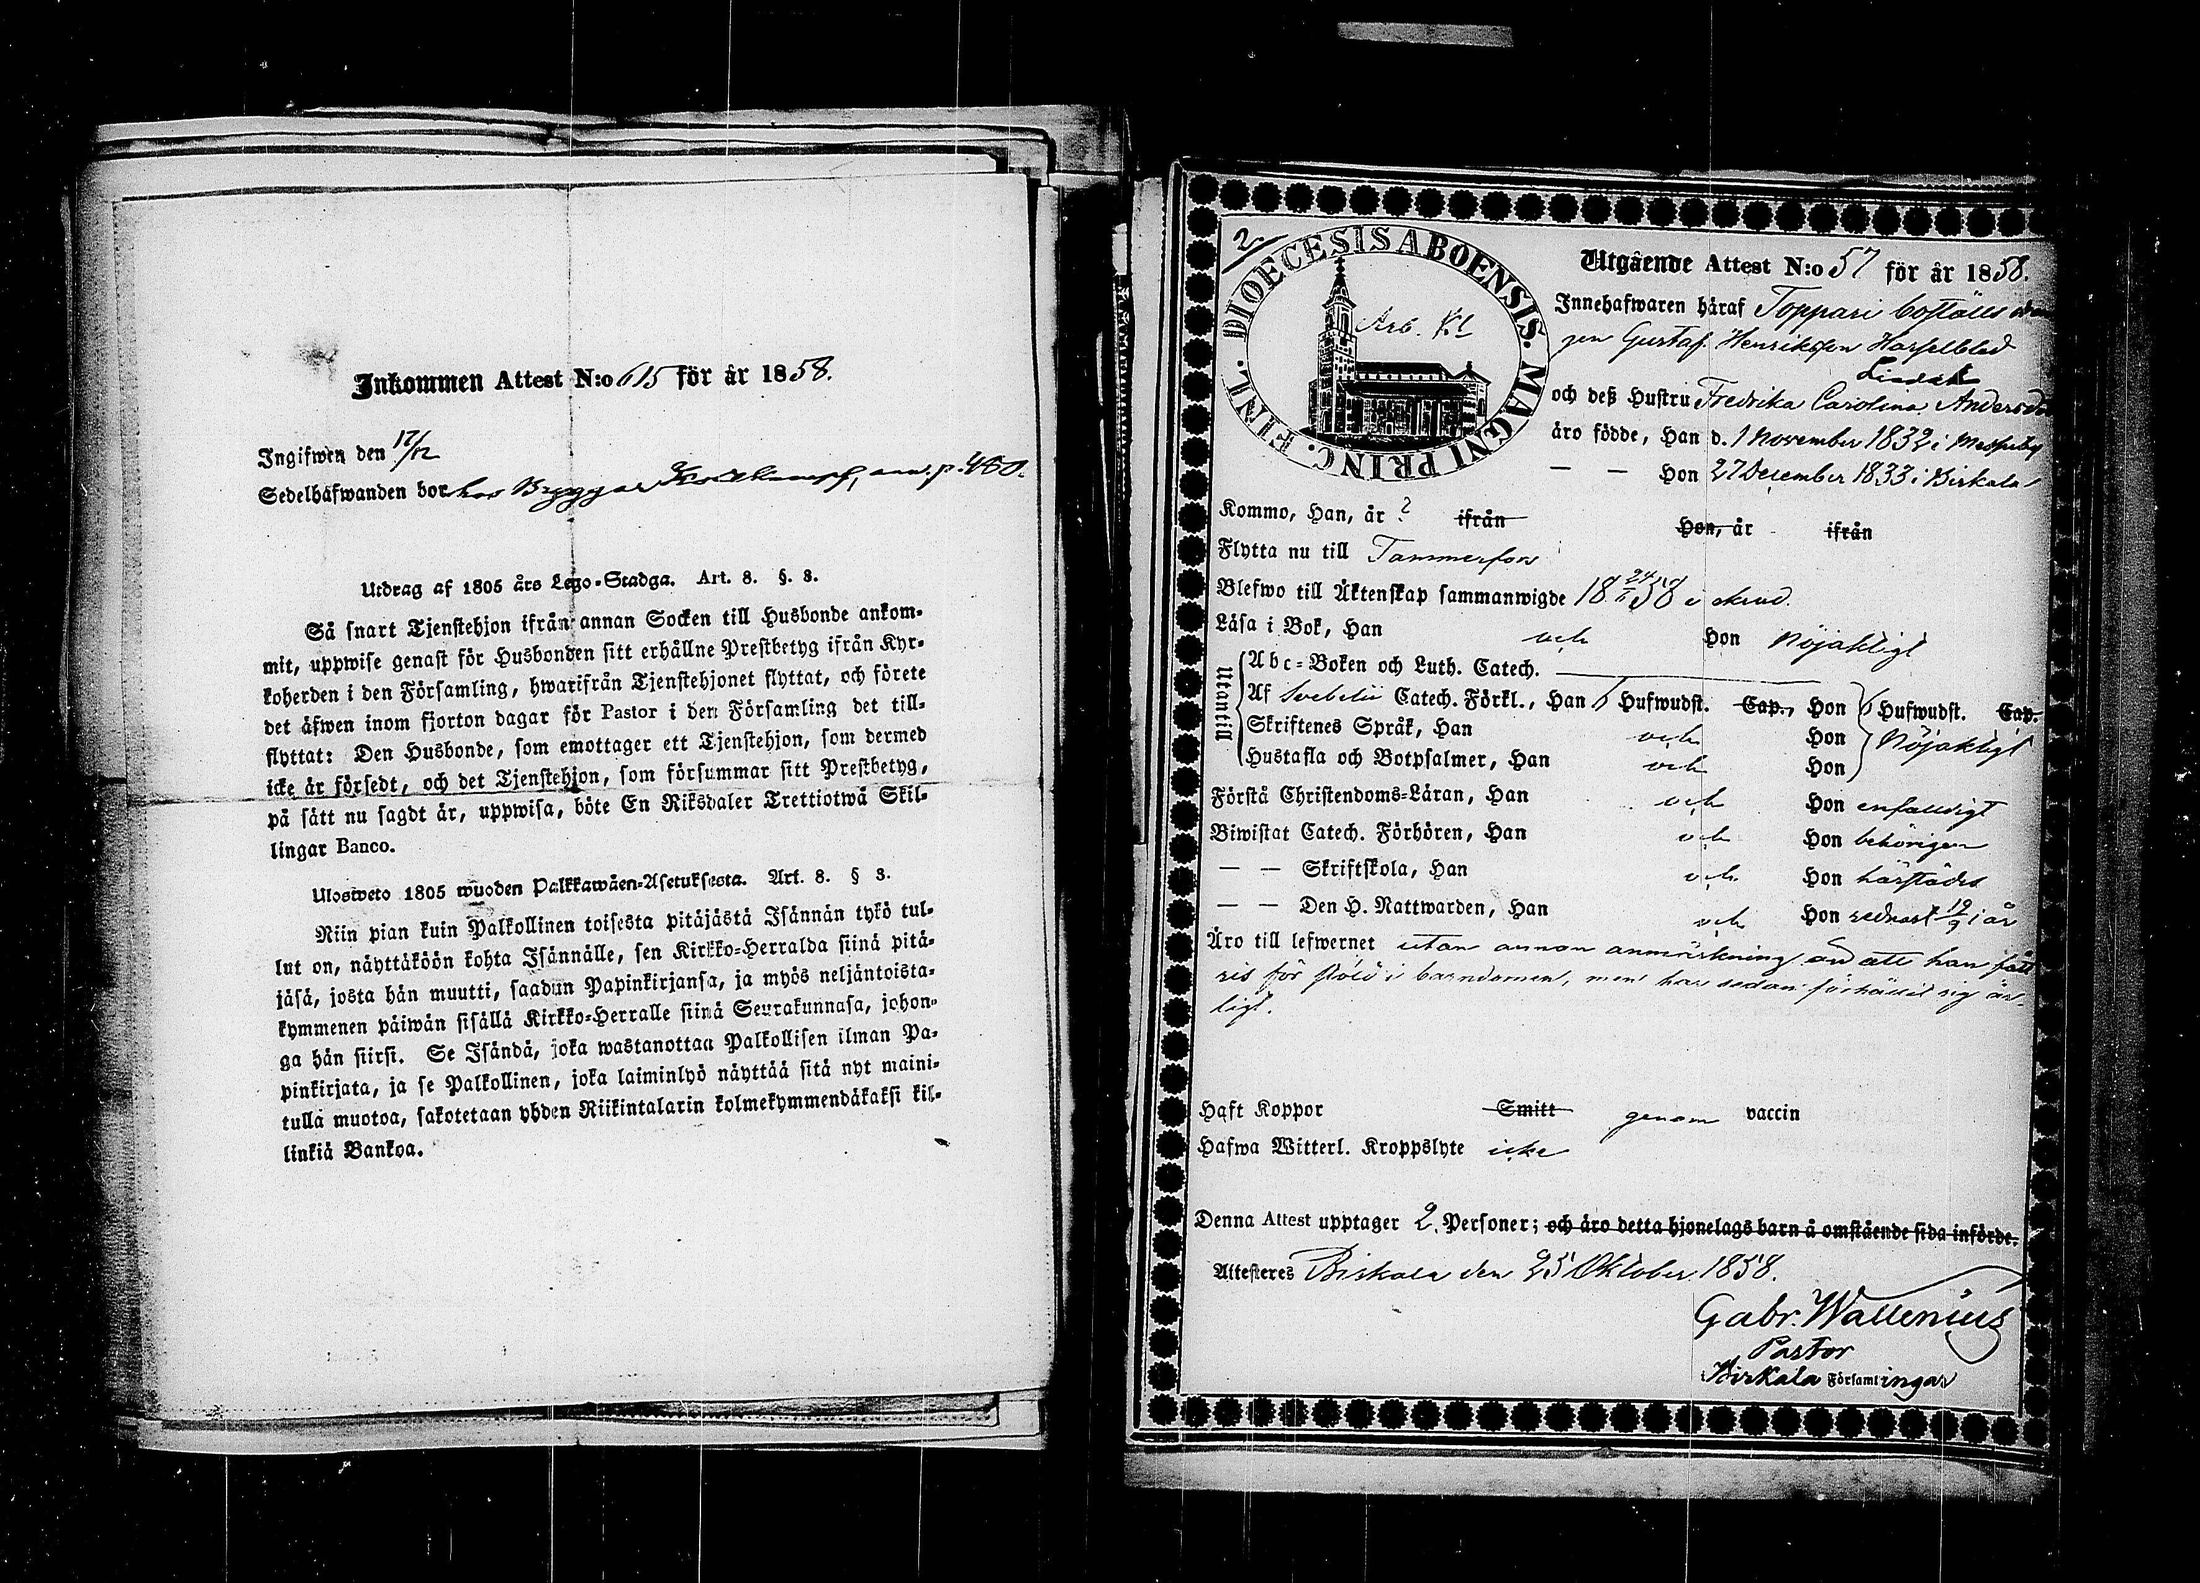 Inkommen Attest N:o 615 för år 1858.
Ingifwen den 17/12
Sedelhafwanden bor hos Bryggar anm. p. 480.
Utdrag af 1805 års Lego-Stadga. Art. 8. §. 3.
Så snart Tjenstehjon ifrån annan Socken till Husbonde ankom-
mit, uppwise genast för Husbonden sitt erhållne Prestbetyg ifrån Kyr-
koherden i den Församling, hwarifrån Tjenstehjonet flyttat, och förete
det äfwen inom fjorton dagar för Pastor i den Församling det till-
flyttat: Den Husbonde, som emottager ett Tjenstehjon, som dermed
icke är försedt, och det Tjenstehjon, som försummar sitt Prestbetyg,
på sätt nu sagdt är, uppwisa, böte En Riksdaler Trettiotwå Skil-
lingar Banco.
Ulosweto 1805 wuoden Palkkawäen-Asetuksesta. Art. 8. § 3.
Niin pian kuin Palkollinen toisesta pitäjästä Isännän tykö tul-
lut on, näyttäköön kohta Isännälle, sen Kirkko-Herralda siinä pitä-
jäsä, josta hän muutti, saadun Papinkirjansa, ja myös neljäntoista-
kymmenen päiwän sisällä Kirkko-Herralle siinä Seurakunnasa, johon-
ga hän siirsi. Se Isändä, joka wastanottaa Palkollisen ilman Pa-
pinkirjata, ja se Palkollinen, joka laiminlyö näyttää sitä nyt maini-
tulla muotoa, sakotetaan yhden Riikintalarin kolmekymmendäkaksi kil-
linkiä Bankoa.
2.
DIOECESIS ABOENSIS. MAGNI PRINC. FINL.
Arb. Kl
Utgående Attest N:o 57 för år 1858.
Innehafwaren häraf Toppari boställs
gen Gustaf Henriksson Hasselblad
Lindak
och deß Hustru Fredrika Carolina Andersd
äro födde, Han d. 1 November 1832 i Messuby
— — Hon 27 December 1833 i Birkala
Kommo, Han, år ? ifrån Hon, år ifrån
Flytta nu till Tammerfors
Blefwo till Äktenskap sammanwigde 1858 i
Läsa i Bok, Han och Hon Nöjaktigt
Utantill
Abc-Boken och Luth. Catech.
Af Svebelii Catech. Förkl., Han 6 Hufwudst. Cap., Hon 6 Hufwudst. Cap.
Skriftenes Språk, Han och Hon Nöjaktigt
Hustafla och Botpsalmer, Han och Hon
Förstå Christendoms-Läran, Han och Hon enfaldigt
Biwistat Catech. Förhören, Han och Hon behörigen
— — Skriftskola, Han och Hon härstädes
— — Den H. Nattwarden, Han och Hon sednast 19/9 i år
Äro till lefwernet utan annan anmärkning än att han fått
ris för stöld i barndomen, men har sedan förhållit sig är-
ligt.
Haft Koppor Smitt genom vaccin
Hafwa Witterl. Kroppslyte icke
Denna Attest upptager 2. Personer; och äro detta hjonelags barn å omstående sida införde.
Attesteres Birkala den 25 Oktober 1858.
Gabr. Wallenius
Pastor
Birkala Församlingar